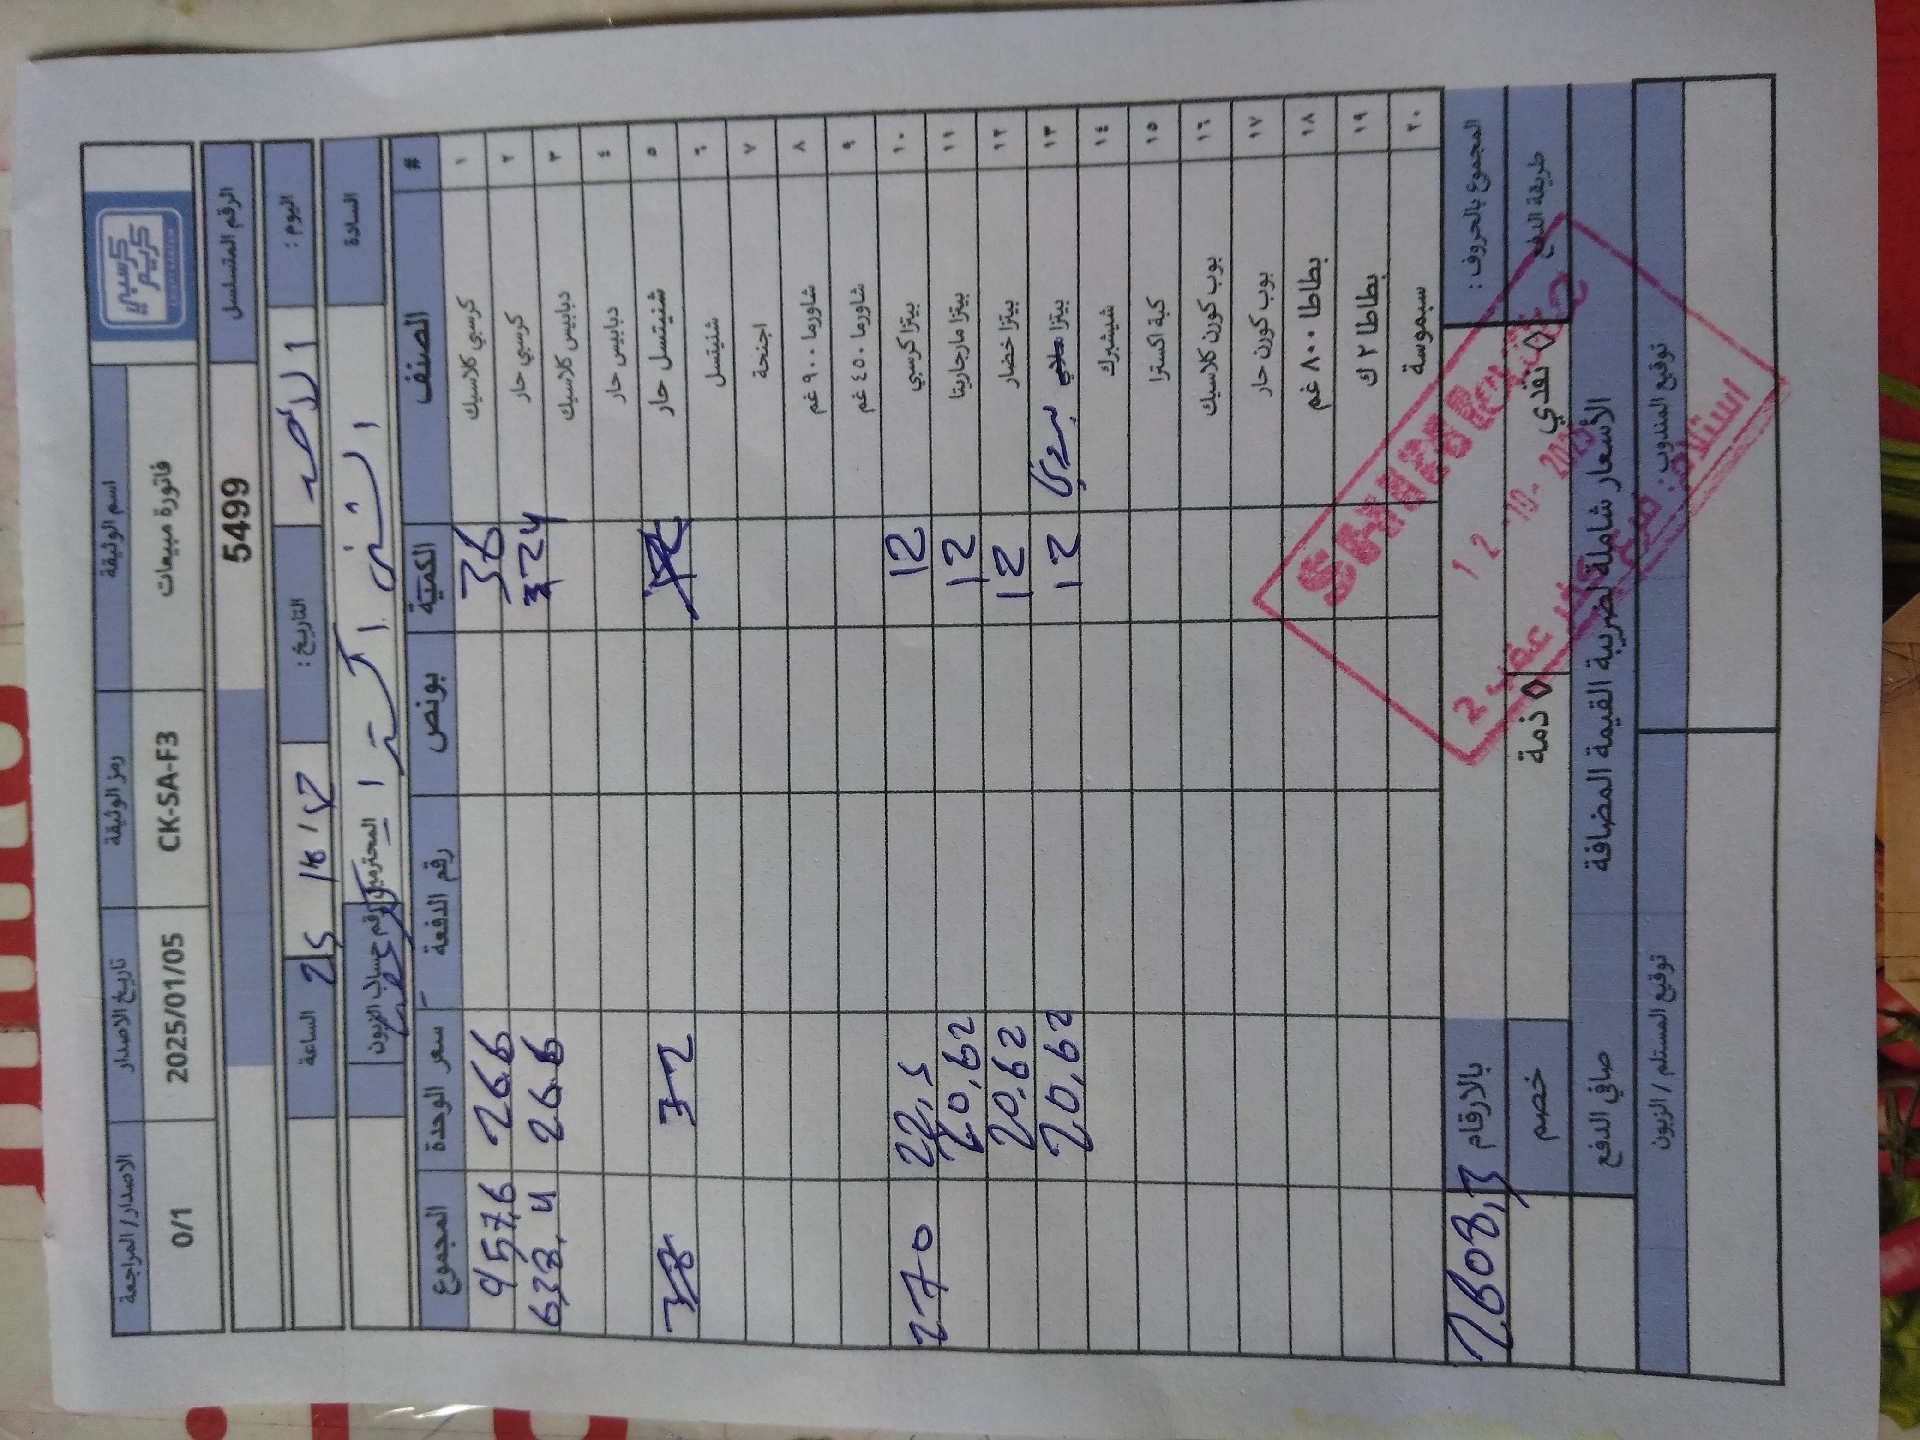 كرسبي كريم
اسم الوثيقة رمز الوثيقة تاريخ الاصدار الاصدار/ المراجعة
فاتورة مبيعات CK-SA-F3 2025/01/05 0/1
الرقم المتسلسل 5499
اليوم : الأحد التاريخ : الساعة
السادة المحترمين رقم حساب الزبون
# الصنف الكمية بونص رقم الدفعة سعر الوحدة المجموع
١ كرسبي كلاسيك 36 26.6 957.6
٢ كرسبي حار 24 26.6 638.4
٣ دبابيس كلاسيك
٤ دبابيس حار
٥ شنيتسل حار 32
٦ شنيتسل
٧ اجنحة
٨ شاورما ٩٠٠ غم
٩ شاورما ٤٥٠ غم
١٠ بيتزا كرسبي 12 22,5 270
١١ بيتزا مارجاريتا 12 20,62
١٢ بيتزا خضار 12 20,62
١٣ بيتزا 12 20,62
١٤ شيشبرك
١٥ كبة اكسترا
١٦ بوب كورن كلاسيك
١٧ بوب كورن حار
١٨ بطاطا ٨٠٠ غم
١٩ بطاطا ٢ ك
٢٠ سمبوسة
المجموع بالحروف : بالارقام 2608,3
طريقة الدفع نقدي ذمة خصم
الأسعار شاملة لضريبة القيمة المضافة صافي الدفع
توقيع المندوب توقيع المستلم / الزبون
12 -10- 2025